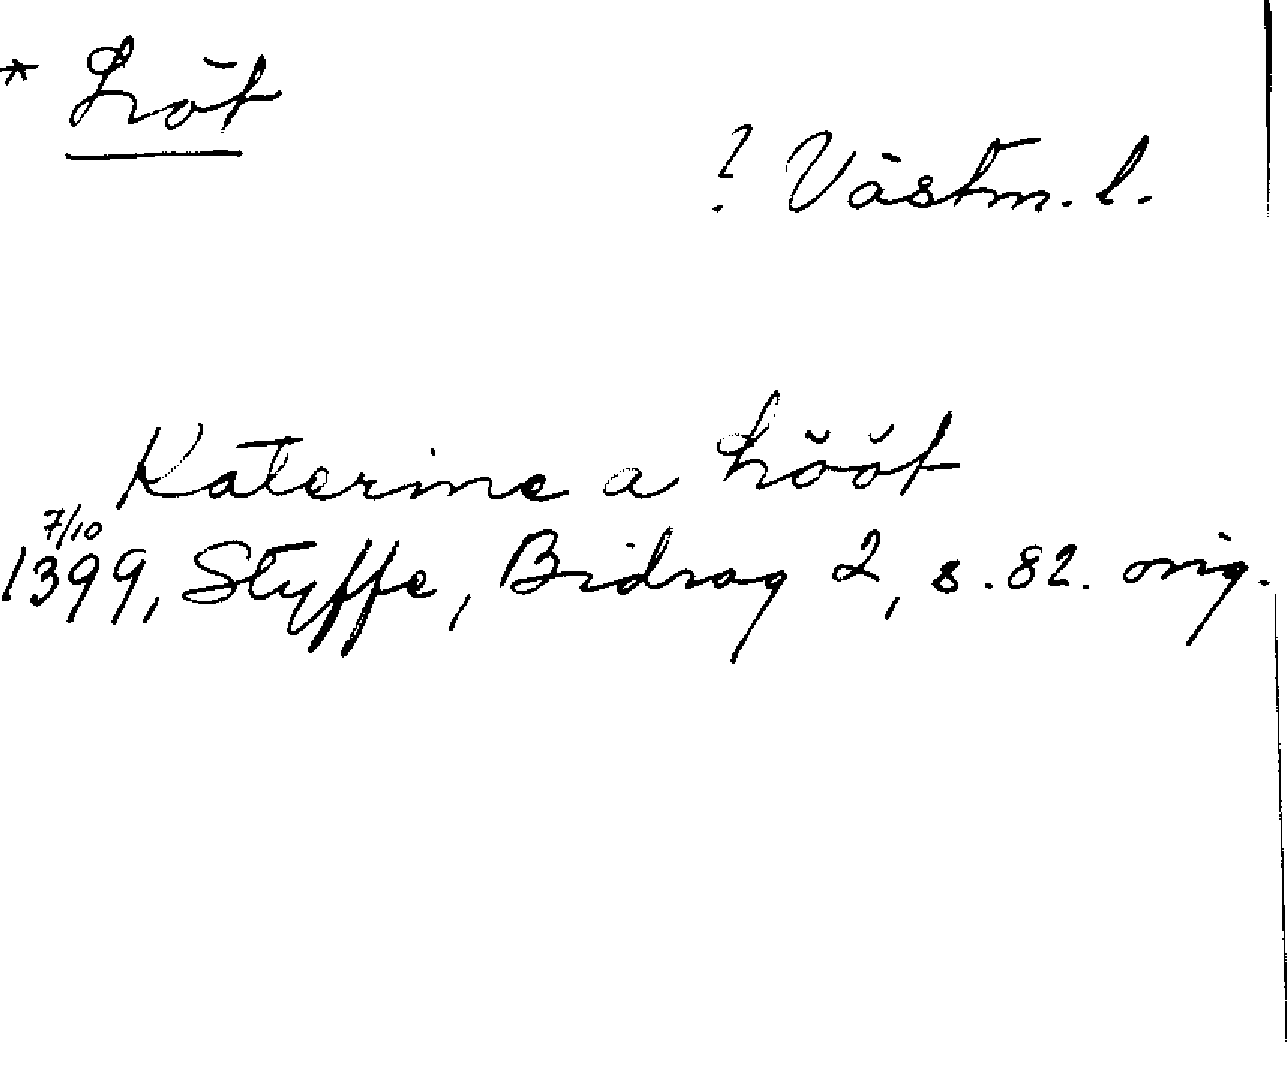 * Löt
? Västm. l.
Katerine a Lööt
7/10
1399, Styffe, Bidrag 2, s. 82. orig.